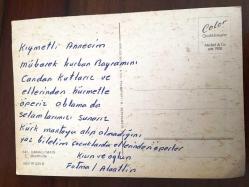 Kıymetli Annecim
Mübarek kurban Bayramını
Candan kutlarız ve
ellerinden hürmetle
öperiz ablama da
selamlarımızı sunarız
Kürk mantoyu alıp olmadığını
yaz bilelim çocuklarda ellerinden öperler
Kızın ve oğlun
Fatma / Alaattin
Color